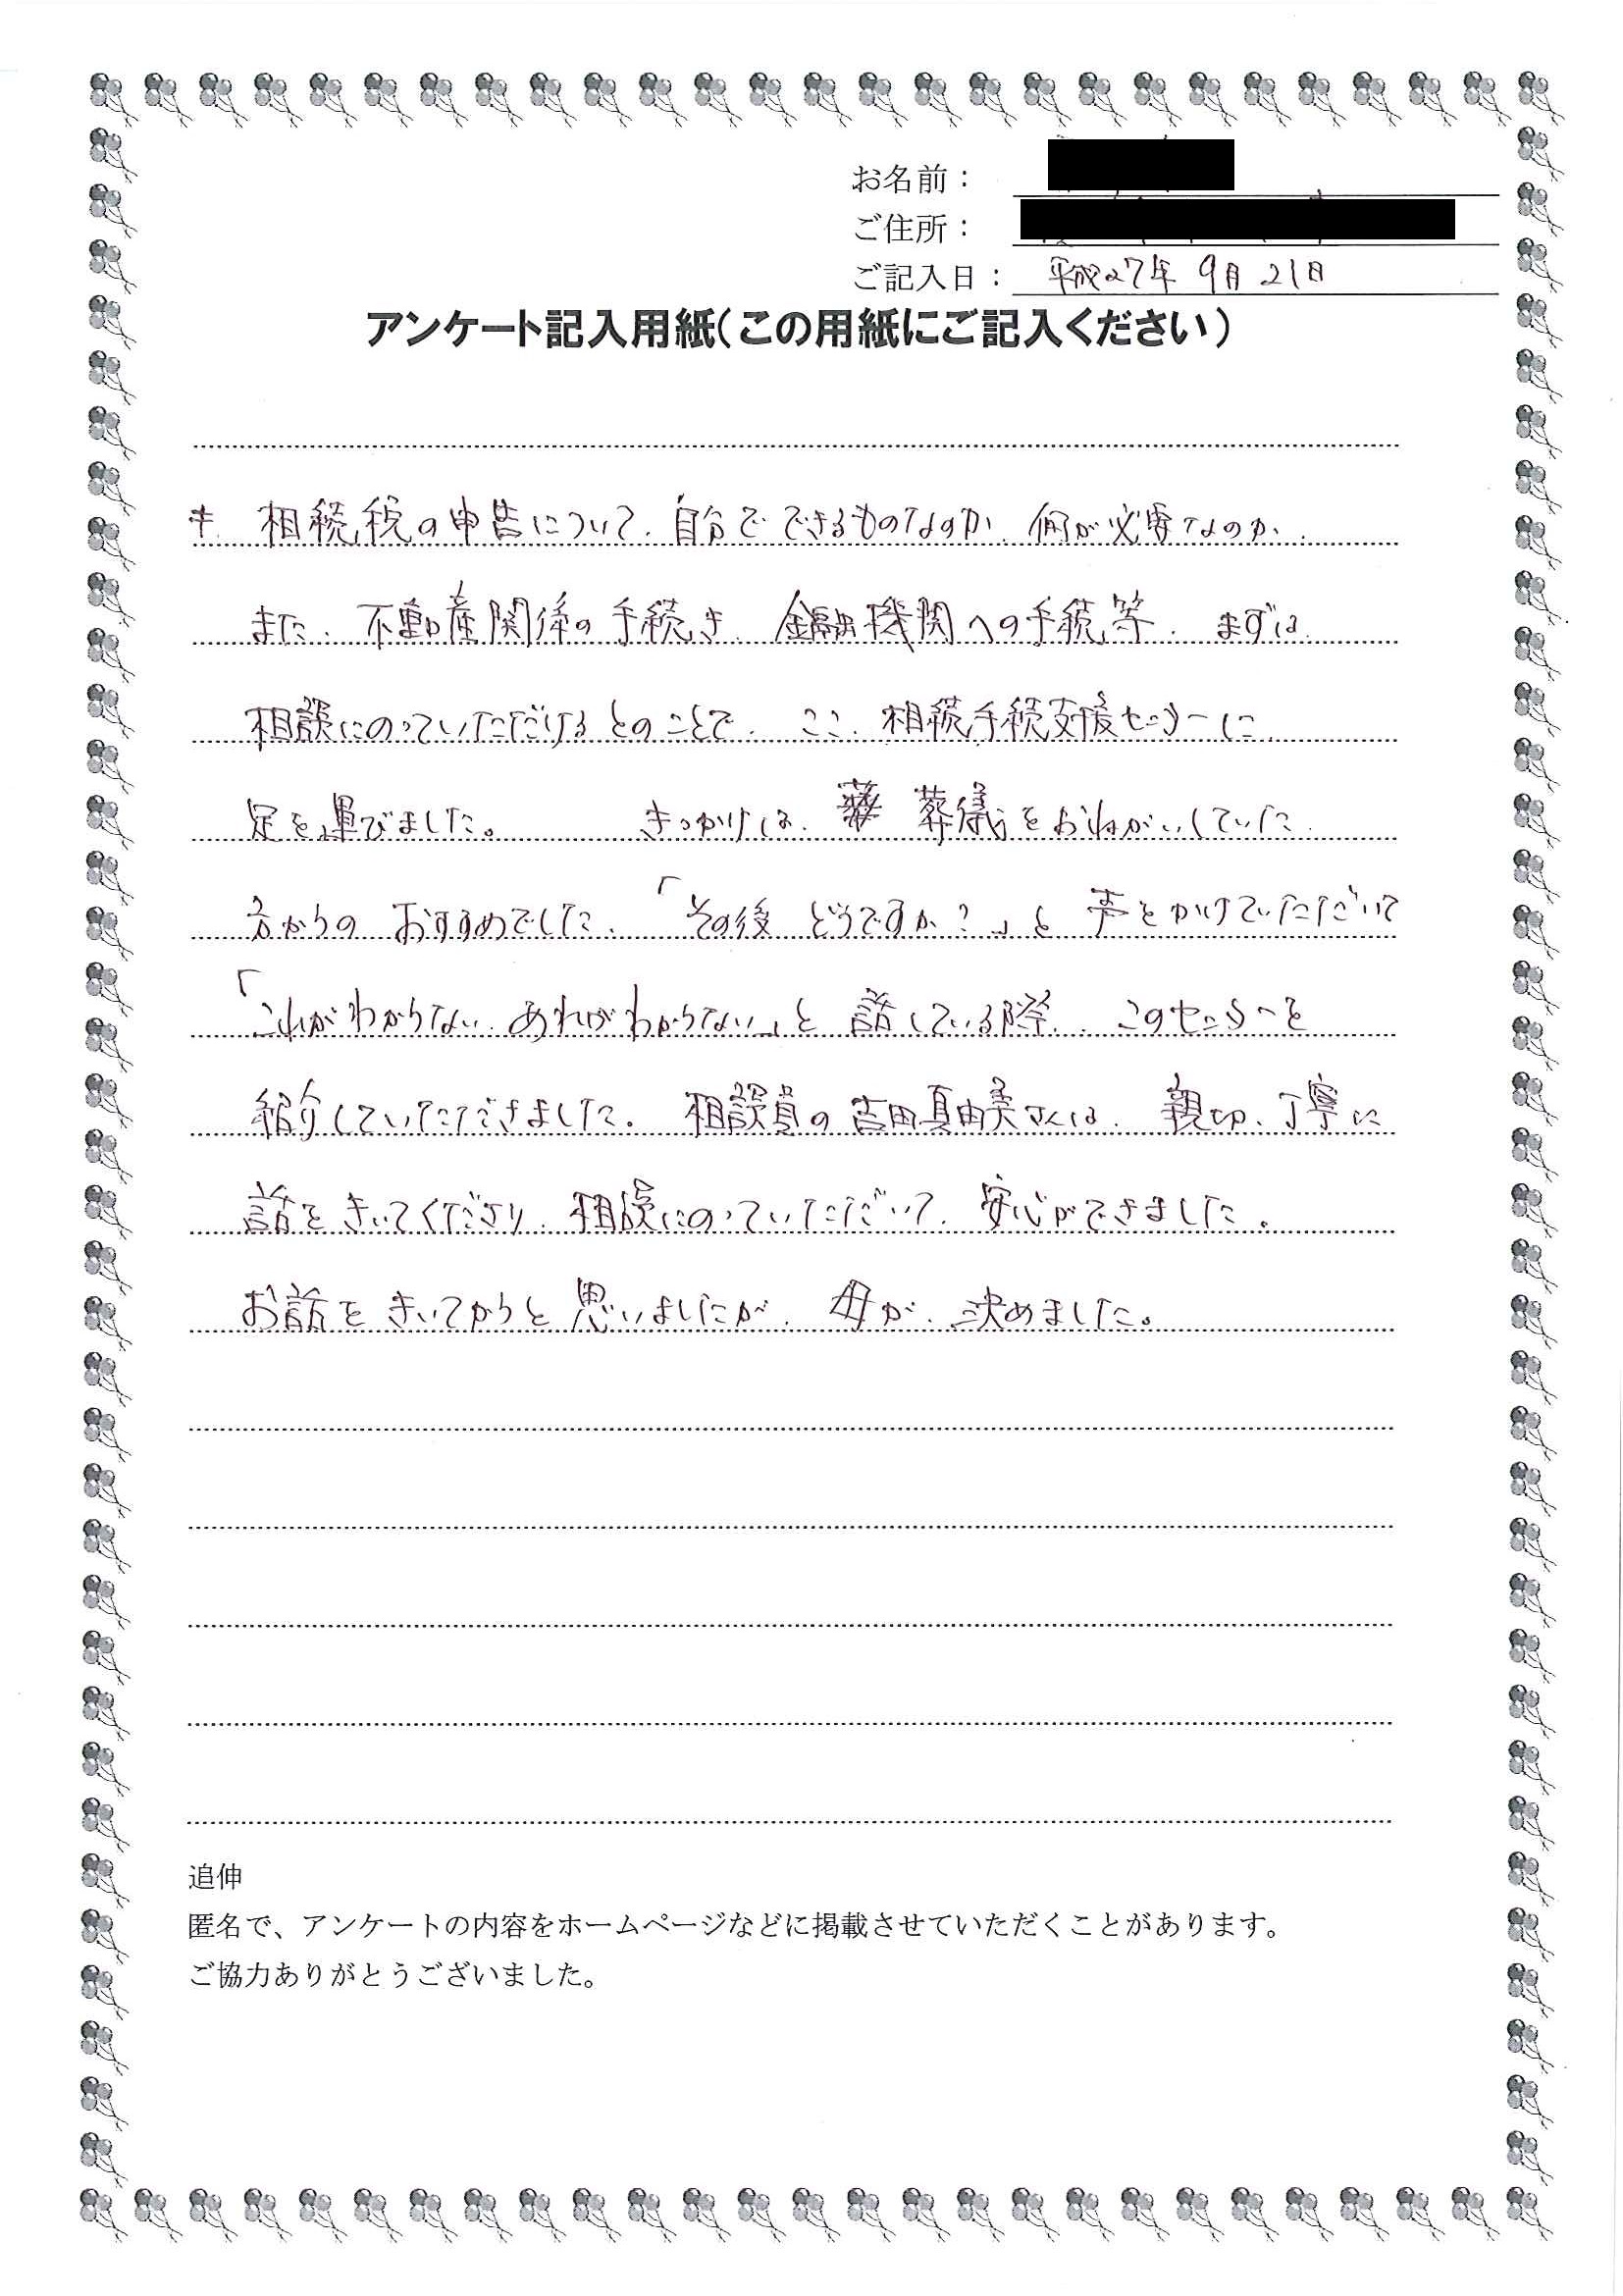 お名前：
ご住所：
ご記入日： 平成27年 9月 21日
アンケート記入用紙（この用紙にご記入ください）
＊ 相続税の申告について、自分でできるものなのか、何が必要なのか、
また、不動産関係の手続き、金融機関への手続等、まずは
相談にのっていただけるとのことで、ここ、相続手続支援センターに
足を運びました。 きっかけは、葬儀をおねがいしていた
方からの おすすめでした、「その後 どうですか？」と 声をかけていただいて
「これがわからない、あれがわからない」と 話している際、このセンターを
紹介していただきました。 相談員の吉田真由美さんは、親切、丁寧に
話をきいてくださり、相談にのっていただいて、安心ができました。
お話をきいてからと思いましたが、母が、決めました。
追伸
匿名で、アンケートの内容をホームページなどに掲載させていただくことがあります。
ご協力ありがとうございました。